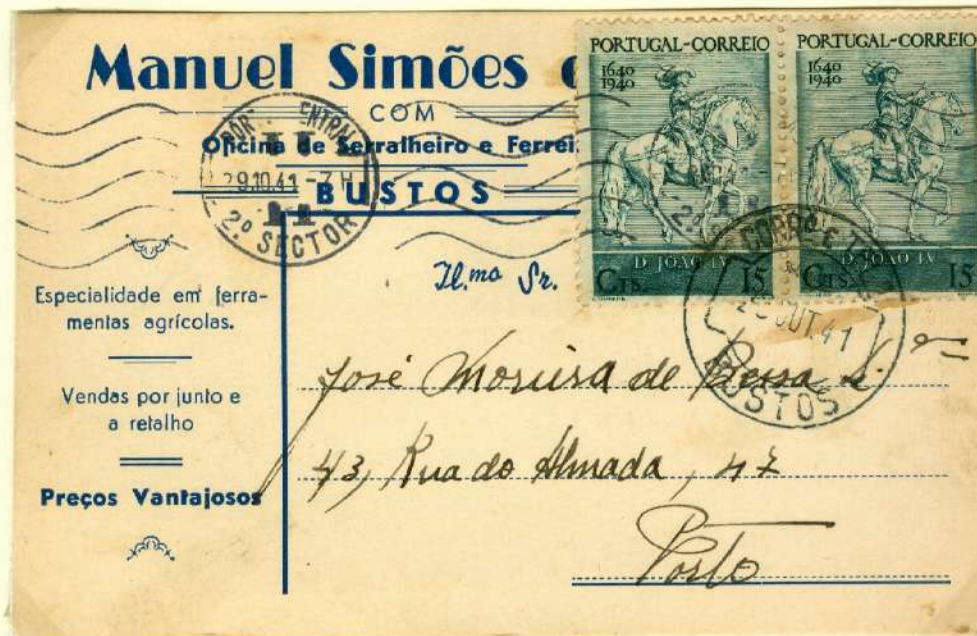 Manuel Simões
COM
Oficina de Serralheiro e Ferrei
BUSTOS
PORT ENTRAL
29.10.41 - 7 H
2º SECTOR
PORTUGAL-CORREIO
1640
1940
D. JOÃO IV
CTS. 15
PORTUGAL-CORREIO
1640
1940
D. JOÃO IV
CTS. 15
CORRO E T
OUT. 41
BUSTOS
Especialidade em ferra-
mentas agrícolas.
Vendas por junto e
a retalho
Preços Vantajosos
Il.mo Sr.
José Moreira de Bessa
43, Rua do Almada, 47
Porto